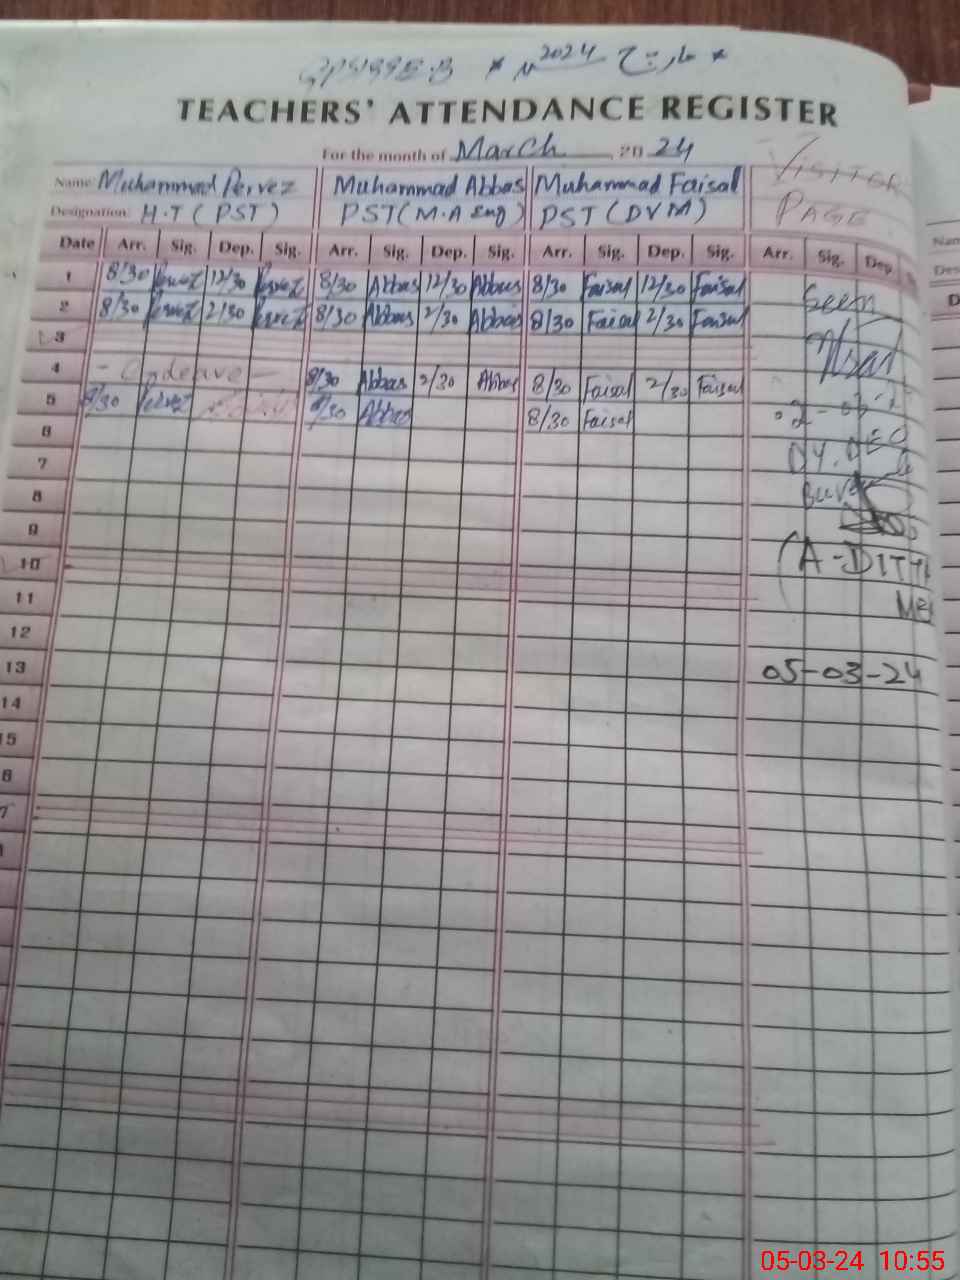 GPS 199 E.B * مارچ 2024 *
TEACHERS' ATTENDANCE REGISTER
For the month of March 20 24
Name: Muhammad Pervez Muhammad Abbas Muhammad Faisal VISITOR
Designation: H.T (PST) PST (M.A Eng) PST (DVM) PAGE
Date Arr. Sig. Dep. Sig. Arr. Sig. Dep. Sig. Arr. Sig. Dep. Sig. Arr. Sig. Dep.
1 8/30 Pervez 12/30 Pervez 8/30 Abbas 12/30 Abbas 8/30 Faisal 12/30 Faisal Seen
2 8/30 Pervez 2/30 Pervez 8/30 Abbas 2/30 Abbas 8/30 Faisal 2/30 Faisal
3
4 - On Leave - 8/30 Abbas 2/30 Abbas 8/30 Faisal 2/30 Faisal
5 8/30 Pervez 8/30 Abbas 8/30 Faisal
6
7
8
9
10
11
12
13 05-03-24
14
15
05-03-24 10:55